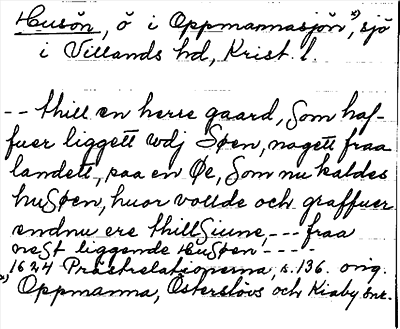 Husön, ö i Oppmannasjön *), sjö
i Villands hd, Krist. l.
-- thill en herre gaard, Som haf-
fuer liggett wdj Søen, nogett fraa
landett, paa en Øe, Som nu kaldes
huSøen, huor vollde och graffuer
endnu ere thillSiune, --- fraa
neSt liggende HuSøen ----
1624 Prästrelationerna, s. 136. orig.
*) Oppmanna, Österslövs och Kiaby snr.